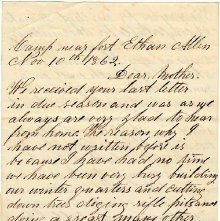 Camp near fort Ethan Allen
Nov 10th 1862
Dear Mother.
We received your last letter
in due season and was as we
always are very glad to hear
from home. the reason why I
have not written before is
because I have had no time
we have been very busy building
our winter quarters and cutting
down trees diging rifle pits and
doing a great many other